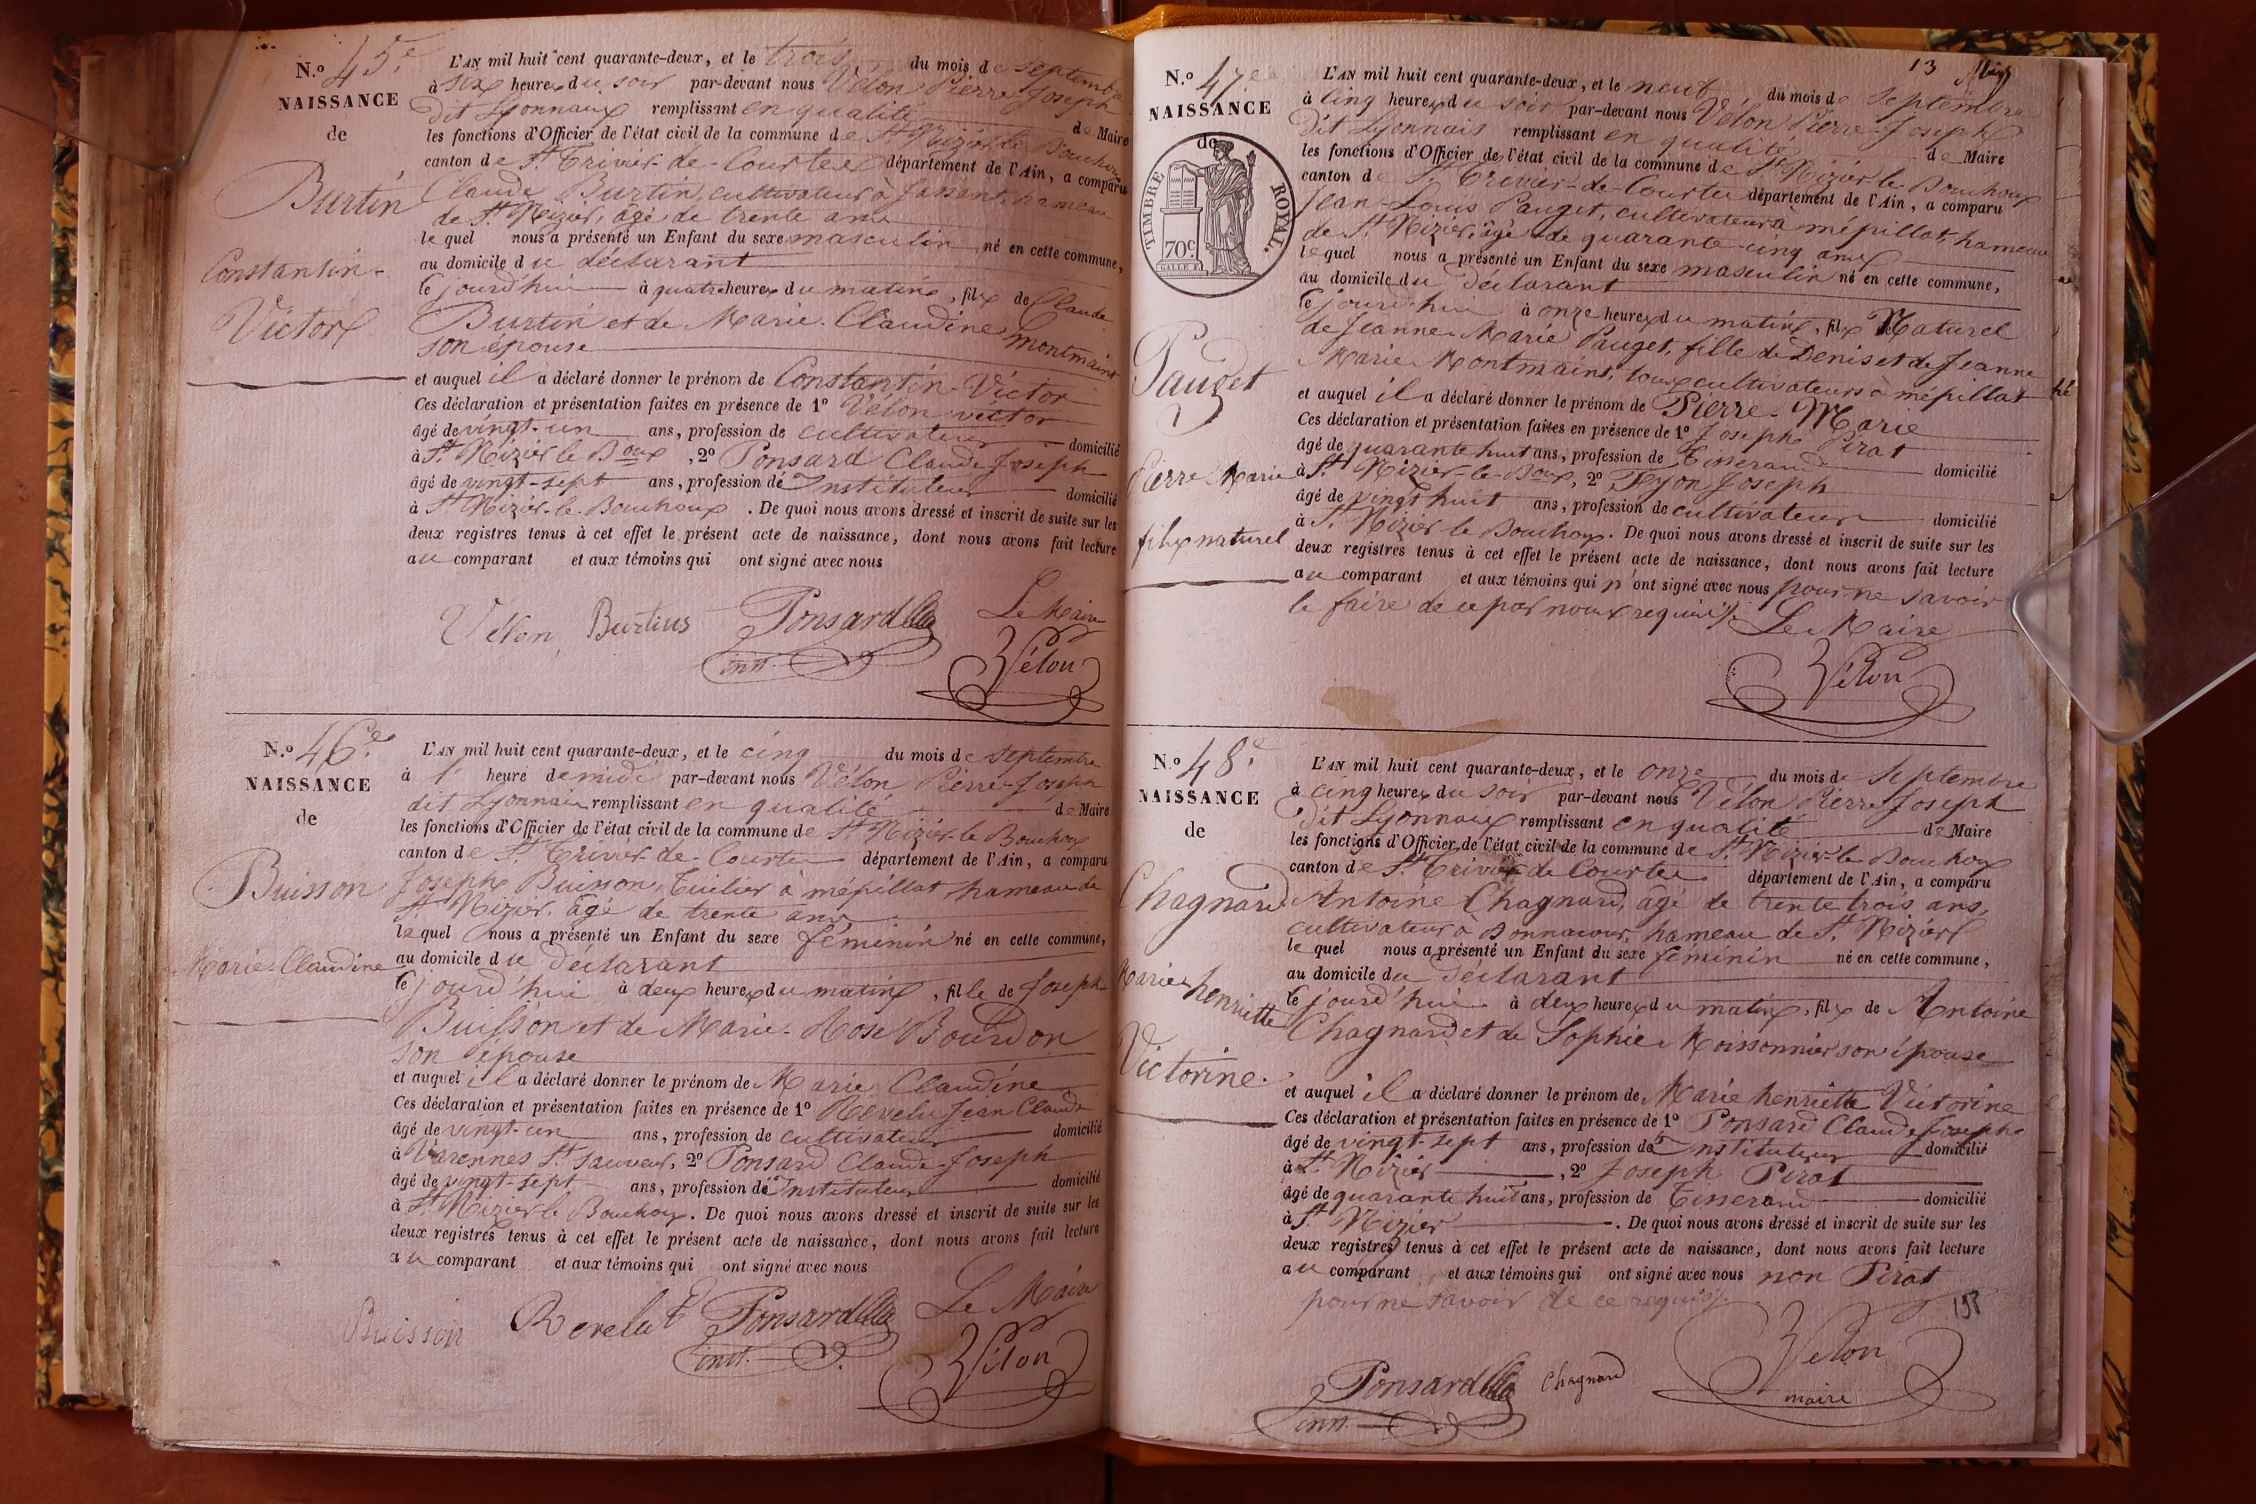 N.º 45.e
NAISSANCE
de
Burtin
Constantin-
Victor
L'AN mil huit cent quarante-deux, et le trois du mois de septembre
à six heures du soir par-devant nous Vélon Pierre Joseph
dit Lyonnaix remplissant en qualité de Maire
les fonctions d'Officier de l'état civil de la commune de St Nizier le Bouhoux
canton de St Trivier-de-Courtes département de l'Ain, a comparu
Claude Burtin, cultivateur à hameau
de St Nizier, âgé de trente ans
le quel nous a présenté un Enfant du sexe masculin né en cette commune,
au domicile du déclarant
le jourd'hui à quatre heures du matin, fils de Claude
Burtin et de Marie-Claudine Montmain
son épouse
et auquel il a déclaré donner le prénom de Constantin-Victor
Ces déclaration et présentation faites en présence de 1º Vélon victor
âgé de vingt-un ans, profession de cultivateur domicilié
à St Nizier le Boux, 2º Ponsard Claude Joseph
âgé de vingt-sept ans, profession de Instituteur domicilié
à St Nizier-le-Bouchoux. De quoi nous avons dressé et inscrit de suite sur les
deux registres tenus à cet effet le présent acte de naissance, dont nous avons fait lecture
au comparant et aux témoins qui ont signé avec nous
Vélon Burtin Ponsard Le Maire
inst. Vélon
N.º 46.e
NAISSANCE
de
Buisson
Marie-Claudine
L'AN mil huit cent quarante-deux, et le cinq du mois de septembre
à 1 heure de midi par-devant nous Vélon Pierre-Joseph
dit Lyonnais remplissant en qualité de Maire
les fonctions d'Officier de l'état civil de la commune de St Nizier-le Bouchoux
canton de St Trivier-de-Courtes département de l'Ain, a comparu
Joseph Buisson, Tuilier à mépillat hameau de
St Nizier, âgé de trente ans
le quel nous a présenté un Enfant du sexe féminin né en cette commune,
au domicile du déclarant
le jourd'hui à deux heures du matin, fille de Joseph
Buisson et de Marie-Rose Bourdon
son épouse
et auquel il a déclaré donner le prénom de Marie Claudine
Ces déclaration et présentation faites en présence de 1º Revelu Jean Claude
âgé de vingt-un ans, profession de cultivateur domicilié
à Varennes St Sauveur, 2º Ponsard Claude Joseph
âgé de vingt-sept ans, profession de Instituteur domicilié
à St Nizier le Bouhoux. De quoi nous avons dressé et inscrit de suite sur les
deux registres tenus à cet effet le présent acte de naissance, dont nous avons fait lecture
au comparant et aux témoins qui ont signé avec nous
Buisson Revelut Ponsard Le Maire
inst. Vélon
13
N.º 47.e
NAISSANCE
de
TIMBRE ROYAL.
70c.
Pauget
Pierre Marie
fils naturel
L'AN mil huit cent quarante-deux, et le neuf du mois de septembre
à cinq heures du soir par-devant nous Vélon Pierre-Joseph
dit Lyonnais remplissant en qualité de Maire
les fonctions d'Officier de l'état civil de la commune de St Nizier-le Bouhoux
canton de St Trivier-de-Courtes département de l'Ain, a comparu
Jean-Louis Pauget, cultivateur à mépillat, hameau
de St Nizier, âgé de quarante-cinq ans
le quel nous a présenté un Enfant du sexe masculin né en cette commune,
au domicile du déclarant
le jourd'hui à onze heures du matin, fils Naturel
de Jeanne Marie Pauget, fille de Denis et de Jeanne
Marie Montmaint, tous cultivateurs à mépillat
et auquel il a déclaré donner le prénom de Pierre-Marie
Ces déclaration et présentation faites en présence de 1º Joseph Pirat
âgé de quarante huit ans, profession de Tisserand domicilié
à St Nizier-le-Boux, 2º Joseph
âgé de vingt huit ans, profession de cultivateur domicilié
à St Nizier le Bouhoux. De quoi nous avons dressé et inscrit de suite sur les
deux registres tenus à cet effet le présent acte de naissance, dont nous avons fait lecture
au comparant et aux témoins qui n'ont signé avec nous pour ne savoir
le faire de ce par nous requis.
Le Maire
Vélon
N.º 48.e
NAISSANCE
de
Chagnard
Marie henriette
Victorine.
L'AN mil huit cent quarante-deux, et le onze du mois de septembre
à cinq heures du soir par-devant nous Vélon Pierre Joseph
dit Lyonnaix remplissant en qualité de Maire
les fonctions d'Officier de l'état civil de la commune de St Nizier-le-Bouhoux
canton de St Trivier de Courtes département de l'Ain, a comparu
Antoine Chagnard, âgé de trente trois ans,
cultivateur à hameau de St Nizier
le quel nous a présenté un Enfant du sexe féminin né en cette commune,
au domicile du déclarant
le jourd'hui à deux heures du matin, fils de Antoine
Chagnard et de Sophie Moissonnier son épouse
et auquel il a déclaré donner le prénom de Marie henriette Victorine
Ces déclaration et présentation faites en présence de 1º Ponsard Claude Joseph
âgé de vingt-sept ans, profession de Instituteur domicilié
à St Nizier, 2º Joseph Pirat
âgé de quarante huit ans, profession de Tisserand domicilié
à St Nizier. De quoi nous avons dressé et inscrit de suite sur les
deux registres tenus à cet effet le présent acte de naissance, dont nous avons fait lecture
au comparant et aux témoins qui ont signé avec nous non Pirat
pour ne savoir de ce requis.
Ponsard Chagnard Vélon
inst. maire